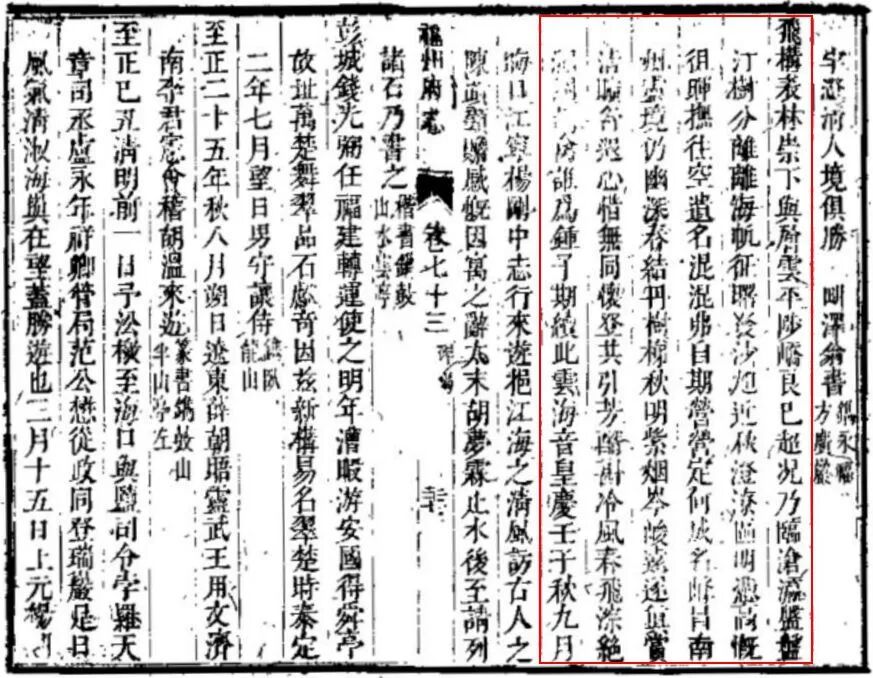 宇澄清人境俱勝 明澤翁書 鐫永福方廣巖
飛構叢林崇下與層雲平陟嶠良已超况乃臨滄瀛盤盤
汀樹分離離海帆征沙秋澄區明憑高慨
徂暉撫往空遺名混混弗自期營營定何成名勝日南
州靈境仍幽深春結丹樹秋明紫烟岑峻遠賞
清曠各心惜無同懷登共引芳冷風春飛淙絶
誰爲鍾子期續此雲海音皇慶壬子秋九月
晦日江寧楊剛中志行來遊挹江海之清風訪古人之
陳迹登臨感慨因寓之辭太末胡夢霖止水後至請列
福州府志 卷七十三 碑碣
諸石乃書之 楷書鐫鼓山水雲亭
彭城錢光弼任福建轉運使之明年漕暇游安國得舜亭
故址萬楚舞翠品石獻奇因茲新構易名翠楚時泰定
二年七月望日男守讓侍 鐫臥龍山
至正二十五年秋八月朔日遼東薛朝晤靈武王用文濟
南李君憲會稽胡溫來遊 篆書鐫鼓山半山亭左
至正己丑清明前一日予訟檄至海口與鹽司令孛羅天
章司丞盧永年祥卿管局范公懋從政同登瑞巖是日
風氣清淑海與在望蓋勝遊也二月十五日上元楊